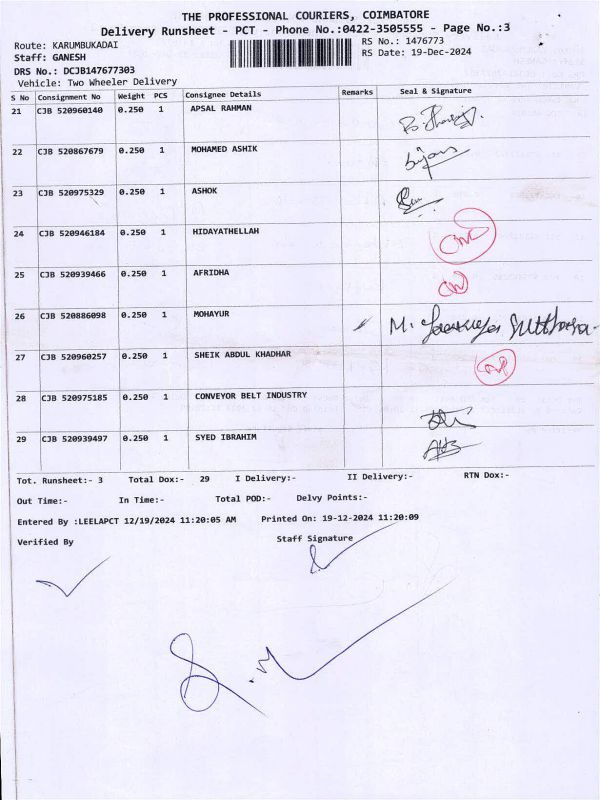 THE PROFESSIONAL COURIERS, COIMBATORE
Delivery Runsheet - PCT - Phone No.:0422-3505555 - Page No.:3
Route: KARUMBUKADAI
RS No.: 1476773
Staff: GANESH
RS Date: 19-Dec-2024
DRS No.: DCJB147677303
Vehicle: Two Wheeler Delivery
S No Consignment No Weight PCS Consignee Details Remarks Seal & Signature
21 CJB 520960140 0.250 1 APSAL RAHMAN
22 CJB 520867679 0.250 1 MOHAMED ASHIK
23 CJB 520975329 0.250 1 ASHOK
24 CJB 520946184 0.250 1 HIDAYATHELLAH
25 CJB 520939466 0.250 1 AFRIDHA
26 CJB 520886098 0.250 1 MOHAYUR
27 CJB 520960257 0.250 1 SHEIK ABDUL KHADHAR
28 CJB 520975185 0.250 1 CONVEYOR BELT INDUSTRY
29 CJB 520939497 0.250 1 SYED IBRAHIM
Tot. Runsheet:- 3 Total Dox:- 29 I Delivery:- II Delivery:- RTN Dox:-
Out Time:- In Time:- Total POD:- Delvy Points:-
Entered By :LEELAPCT 12/19/2024 11:20:05 AM Printed On: 19-12-2024 11:20:09
Verified By Staff Signature